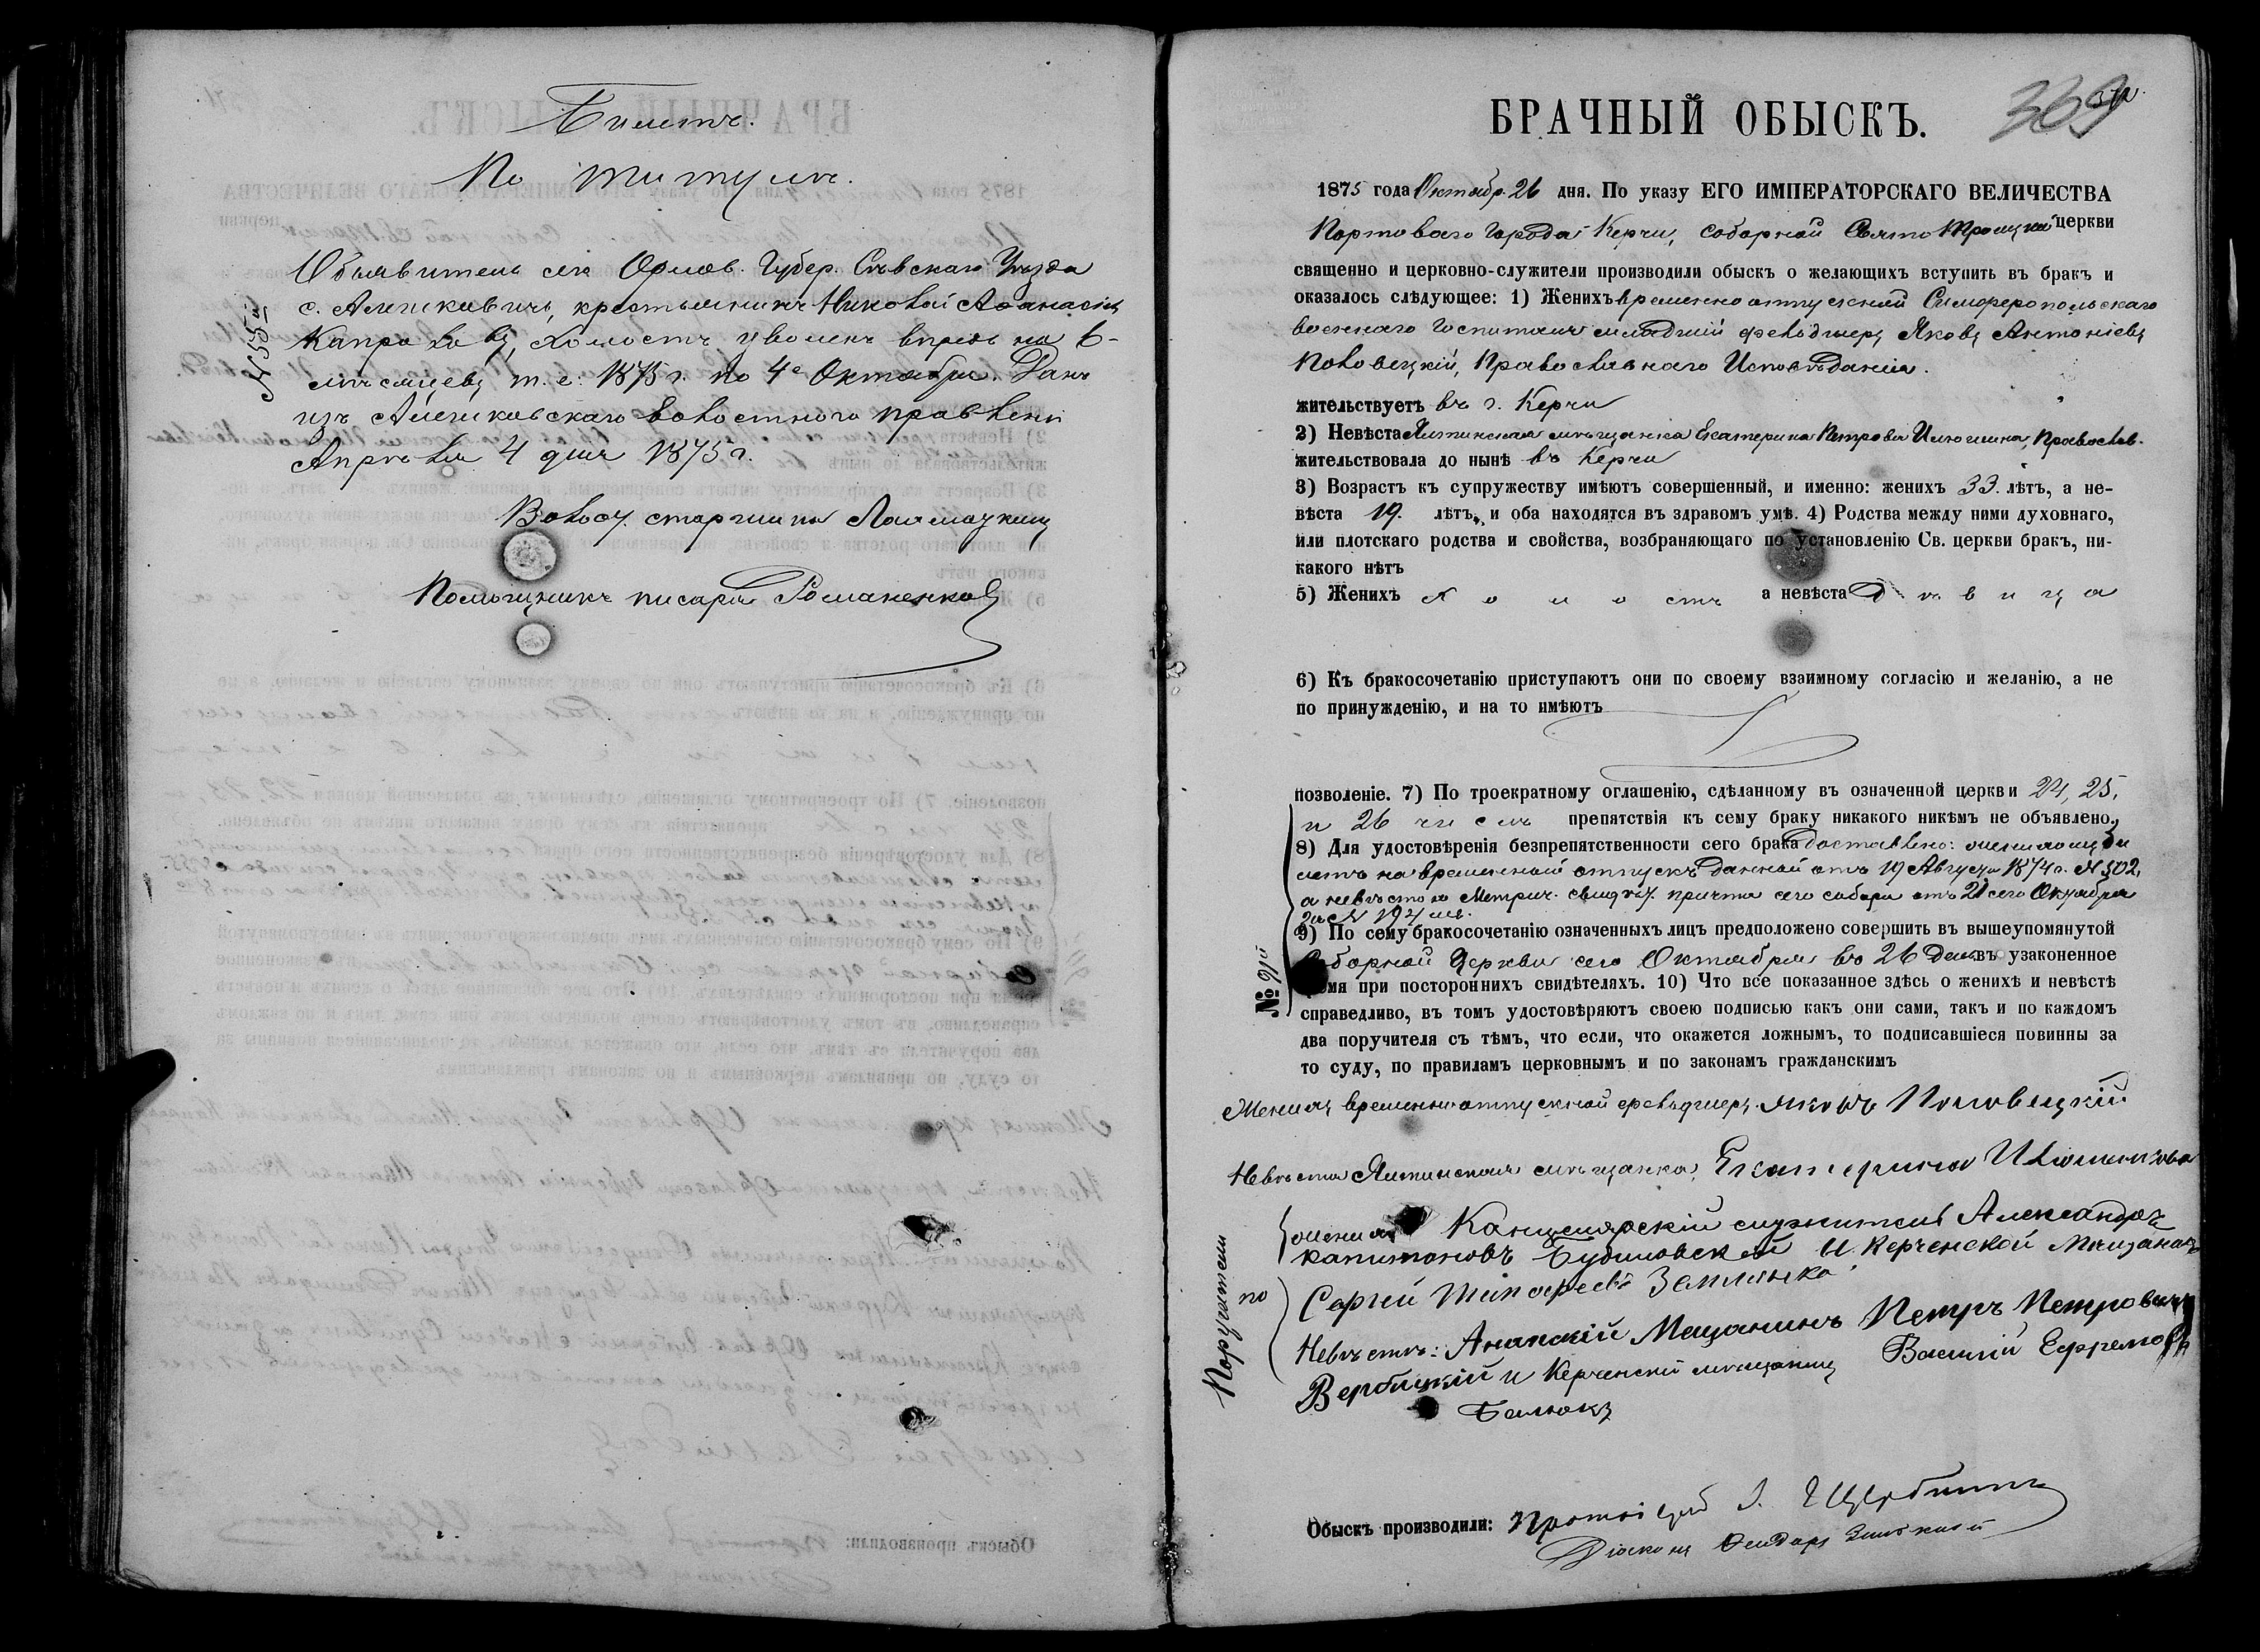 Билетъ.
По титулѣ.
Объявитель сей Орлов. Губер. Сѣвскаго Уѣзда
с. Алешковичь, крестьянинъ Николай Аѳанасіевъ
холостъ уволенъ впредь на 6-
мѣсяцевъ т. е. 1875 г. по 4е Октября. Данъ
изъ Алешковскаго волостного правлені
Апрѣля 4 дня 1875 г.
Волос. старшина
Помощникъ писаря Романенковъ
БРАЧНЫЙ ОБЫСКЪ.
369
1875 года Октябр. 26 дня. По указу ЕГО ИМПЕРАТОРСКАГО ВЕЛИЧЕСТВА
Портоваго города Керчи, соборной Свято Троицкой церкви
священно и церковно-служители производили обыскъ о желающихъ вступить въ бракъ и
оказалось слѣдующее: 1) Женихъ временно отпускной Симферопольскаго
военнаго Госпиталя младшій фельдшеръ Яковъ Антоніевъ
Половецкій, Православнаго Исповѣданія.
жительствуетъ въ г. Керчи
2) Невѣста Ялтинская мѣщанка Екатерина Петрова Илюшина, Православ.
жительствовала до нынѣ въ Керчи
3) Возрастъ къ супружеству имѣютъ совершенный, и именно: женихъ 33. лѣтъ, а не-
вѣста 19. лѣтъ, и оба находятся въ здравомъ умѣ. 4) Родства между ними духовнаго,
или плотскаго родства и свойства, возбраняющаго по установленію Св. церкви бракъ, ни-
какого нѣтъ
5) Женихъ Холостъ а невѣста Дѣвица
6) Къ бракосочетанію приступаютъ они по своему взаимному согласію и желанію, а не
по принужденію, и на то имѣютъ
позволеніе. 7) По троекратному оглашенію, сдѣланному въ означенной церкви 24, 25,
и 26 числъ препятствія къ сему браку никакого никѣмъ не объявлено.
8) Для удостовѣренія безпрепятственности сего брака доставлено: женихомъ би
летъ на временный отпускъ данный отъ 19 Августа 1874 г. № 502,
а невѣстою Метрич. свидѣт. причта сего собора отъ 21 сего Октября
за № 194 мъ.
9) По сему бракосочетанію означенныхъ лицъ предположено совершить въ вышеупомянутой
Соборной Церкви сего Октября въ 26 день въ узаконенное
время при постороннихъ свидѣтеляхъ. 10) Что все показанное здѣсь о женихѣ и невѣстѣ
справедливо, въ томъ удостовѣряютъ своею подписью какъ они сами, такъ и по каждомъ
два поручителя съ тѣмъ, что если, что окажется ложнымъ, то подписавшіеся повинны за
то суду, по правиламъ церковнымъ и по законамъ гражданскимъ
Женихъ временно отпускной фельдшеръ Яковъ Половецкій
Невѣста Ялтинская мѣщанка, Екатерина
Поручители по
женихѣ Канцелярскій служитель Александръ
Капитоновъ И Керченской Мещанинъ
Сергей Тимофеевъ Землянко
Невѣстѣ: Анапскій Мещанинъ Петръ Петровичъ
Вербицкій и Керченскій мѣщанинъ Василій Ефремовъ
Обыскъ производили: Протоіерей І. Щербина
Діаконъ